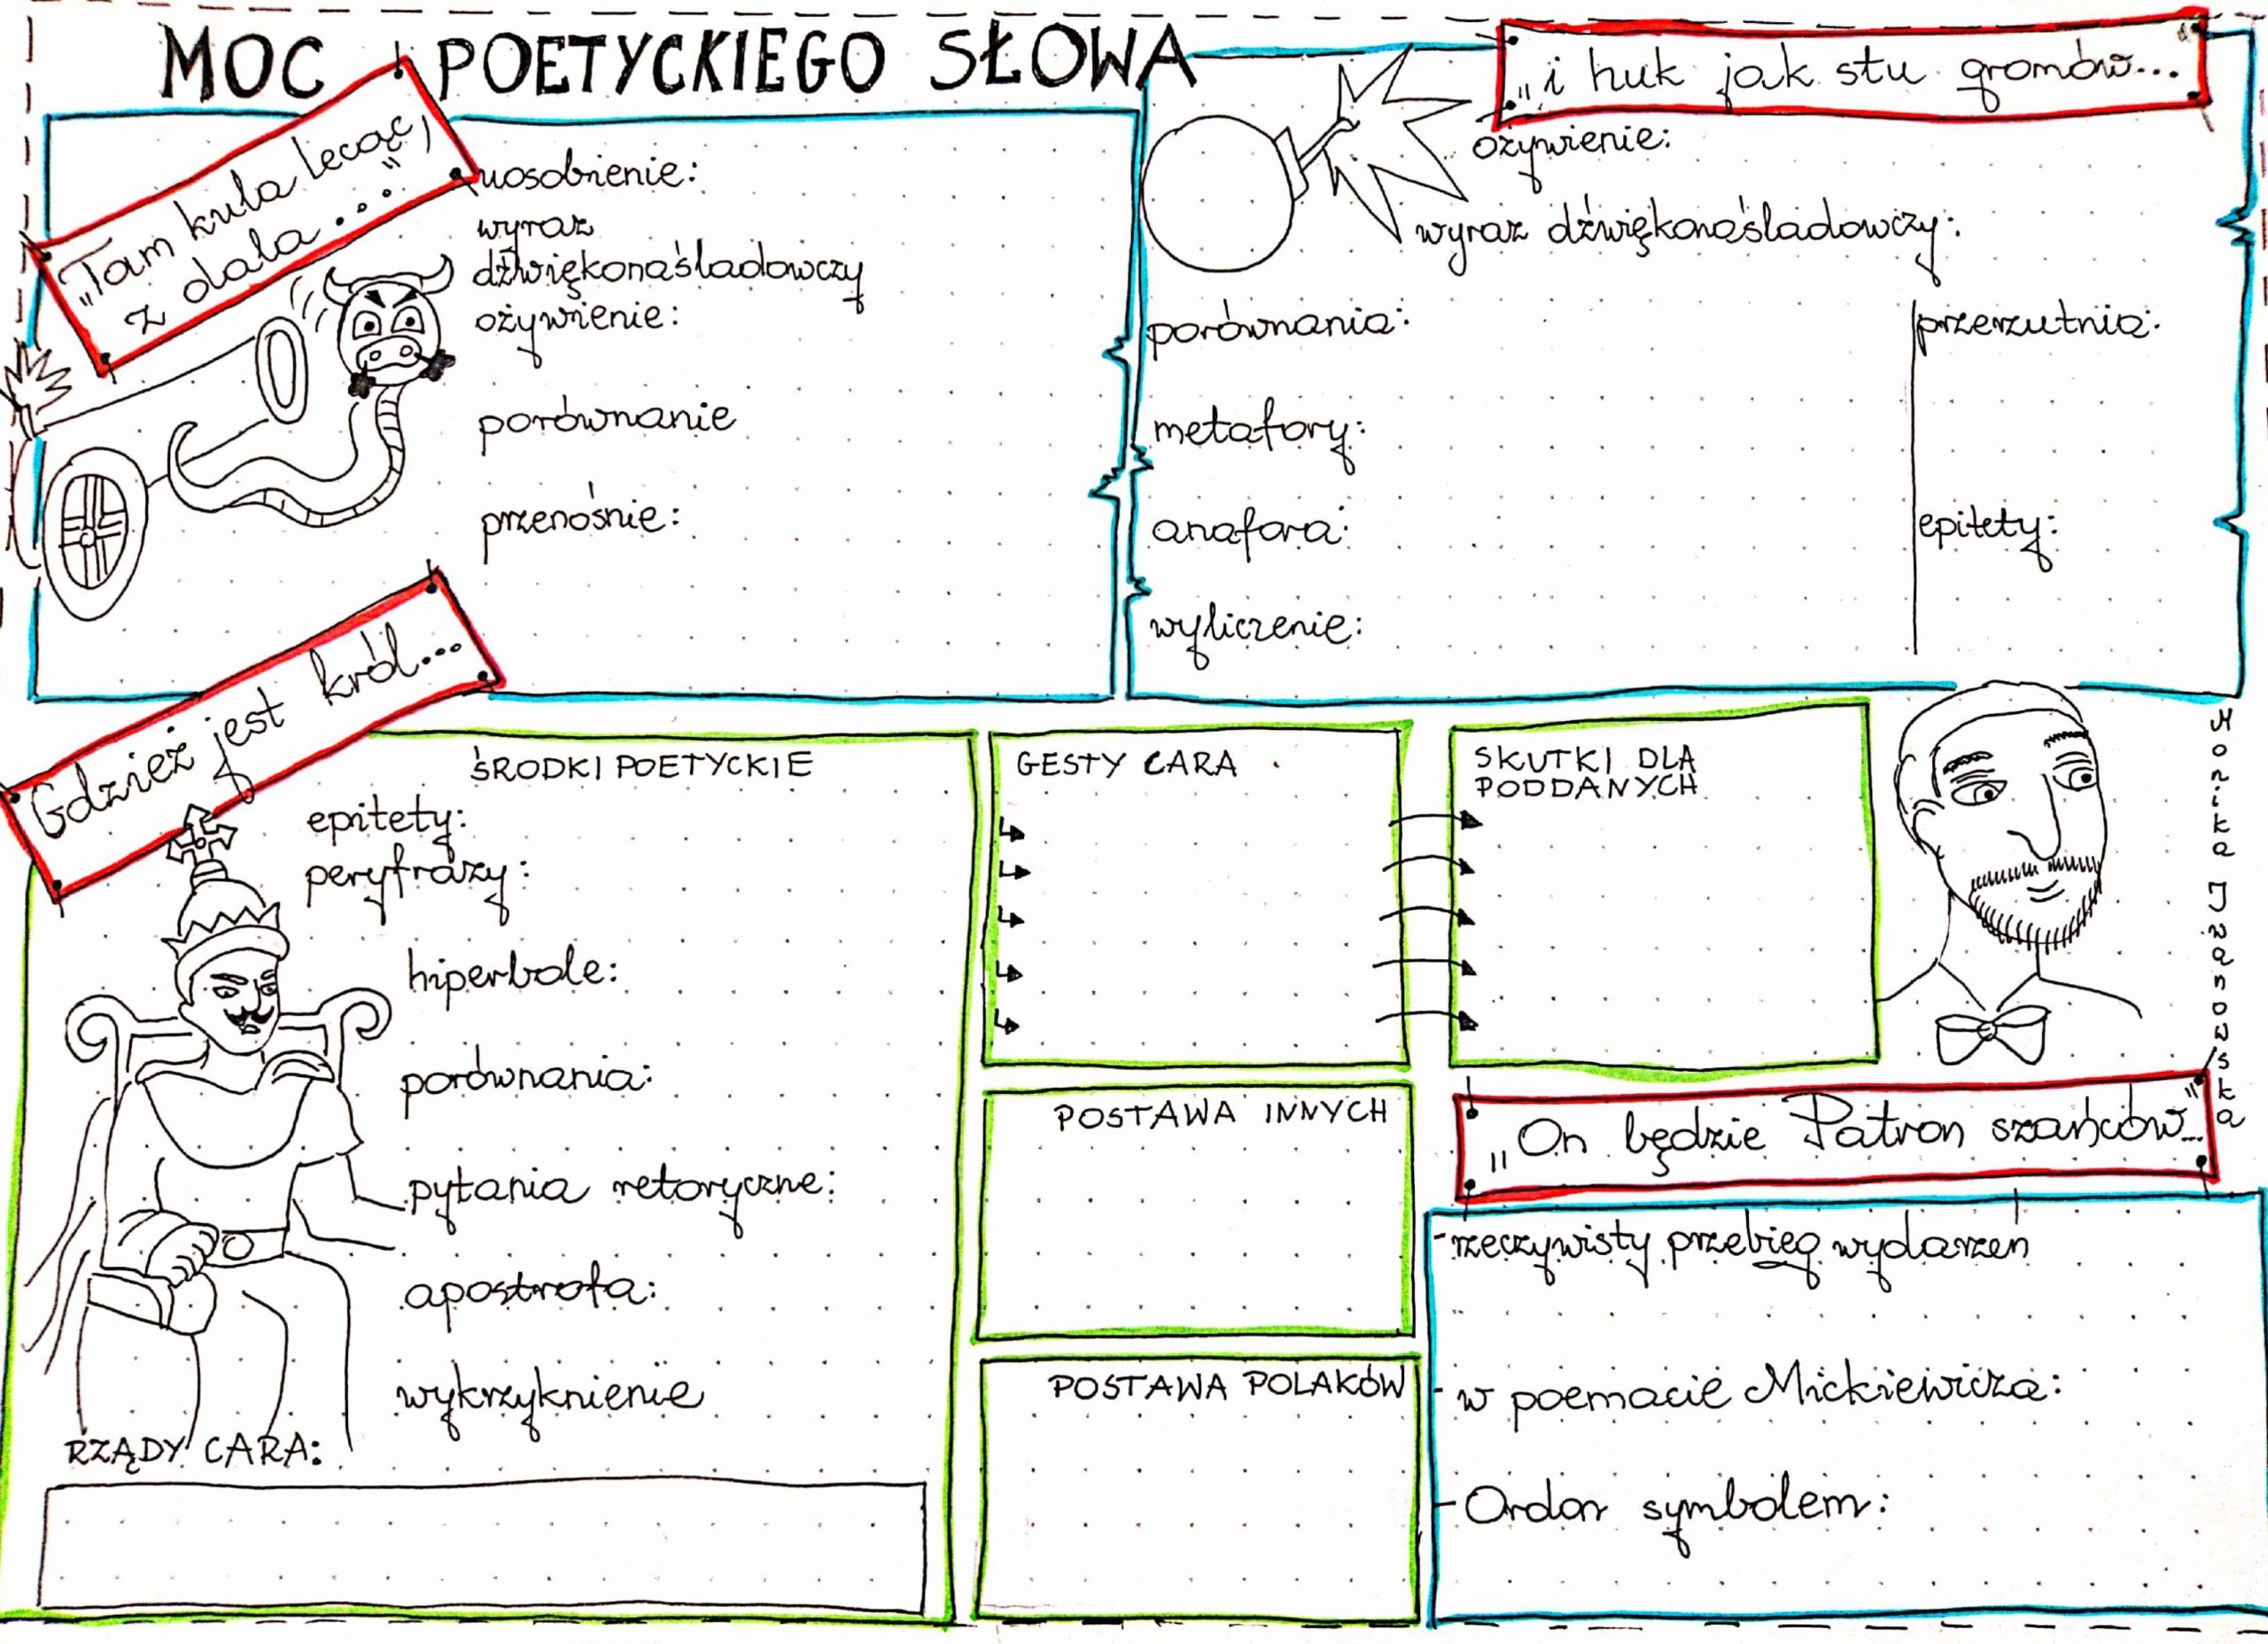 MOC POETYCKIEGO SŁOWA
„Tam kula lecąc,
z dala..."
uosobnienie:
wyraz
dźwiękonaśladowczy
ożywienie:
porównanie
przenośnie:
„i huk jak stu gromów..."
ożywienie:
wyraz dźwiękonaśladowczy:
porównania:
metafory:
anafora:
wyliczenie:
przerzutnia:
epitety:
Gdzież jest król...
ŚRODKI POETYCKIE
epitety:
peryfrazy:
hiperbole:
porównania:
pytania retoryczne:
apostrofa:
wykrzyknienie
RZĄDY CARA:
GESTY CARA
SKUTKI DLA
PODDANYCH
POSTAWA INNYCH
POSTAWA POLAKÓW
Monika Iwanowska
„On będzie Patron szańców..."
-rzeczywisty przebieg wydarzeń
-w poemacie Mickiewicza:
-Ordon symbolem: